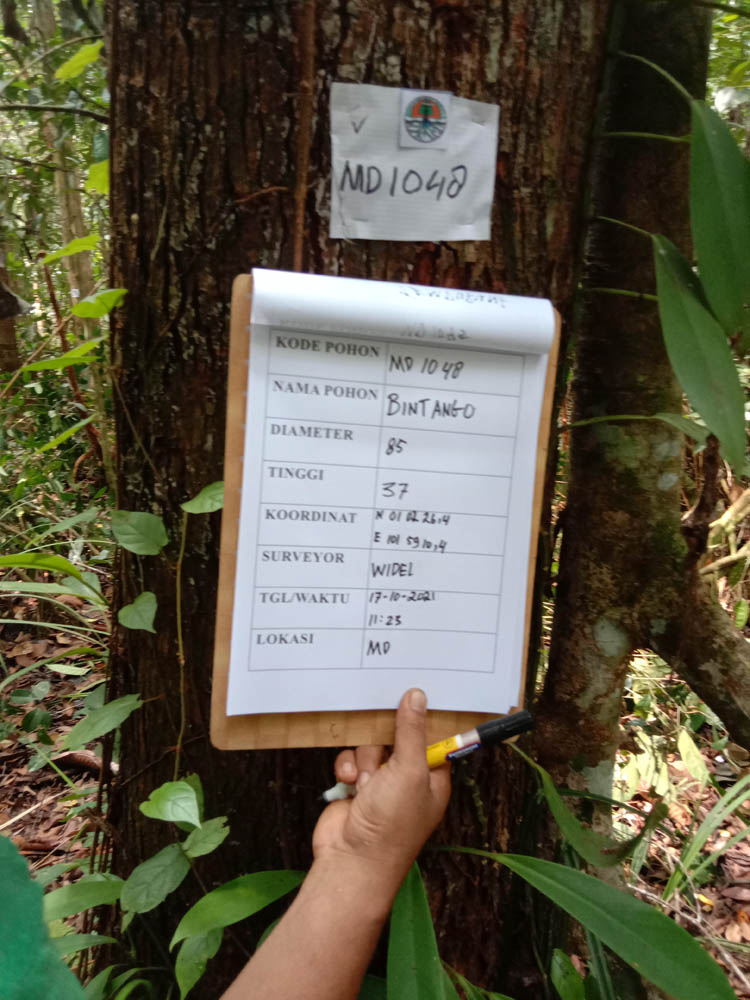 MD 1048
KODE POHON MD 1048
NAMA POHON BINTANGO
DIAMETER 85
TINGGI 37
KOORDINAT N 01 02 26,4
E 101 59 10,4
SURVEYOR WIDEL
TGL/WAKTU 17-10-2021
11:23
LOKASI MD